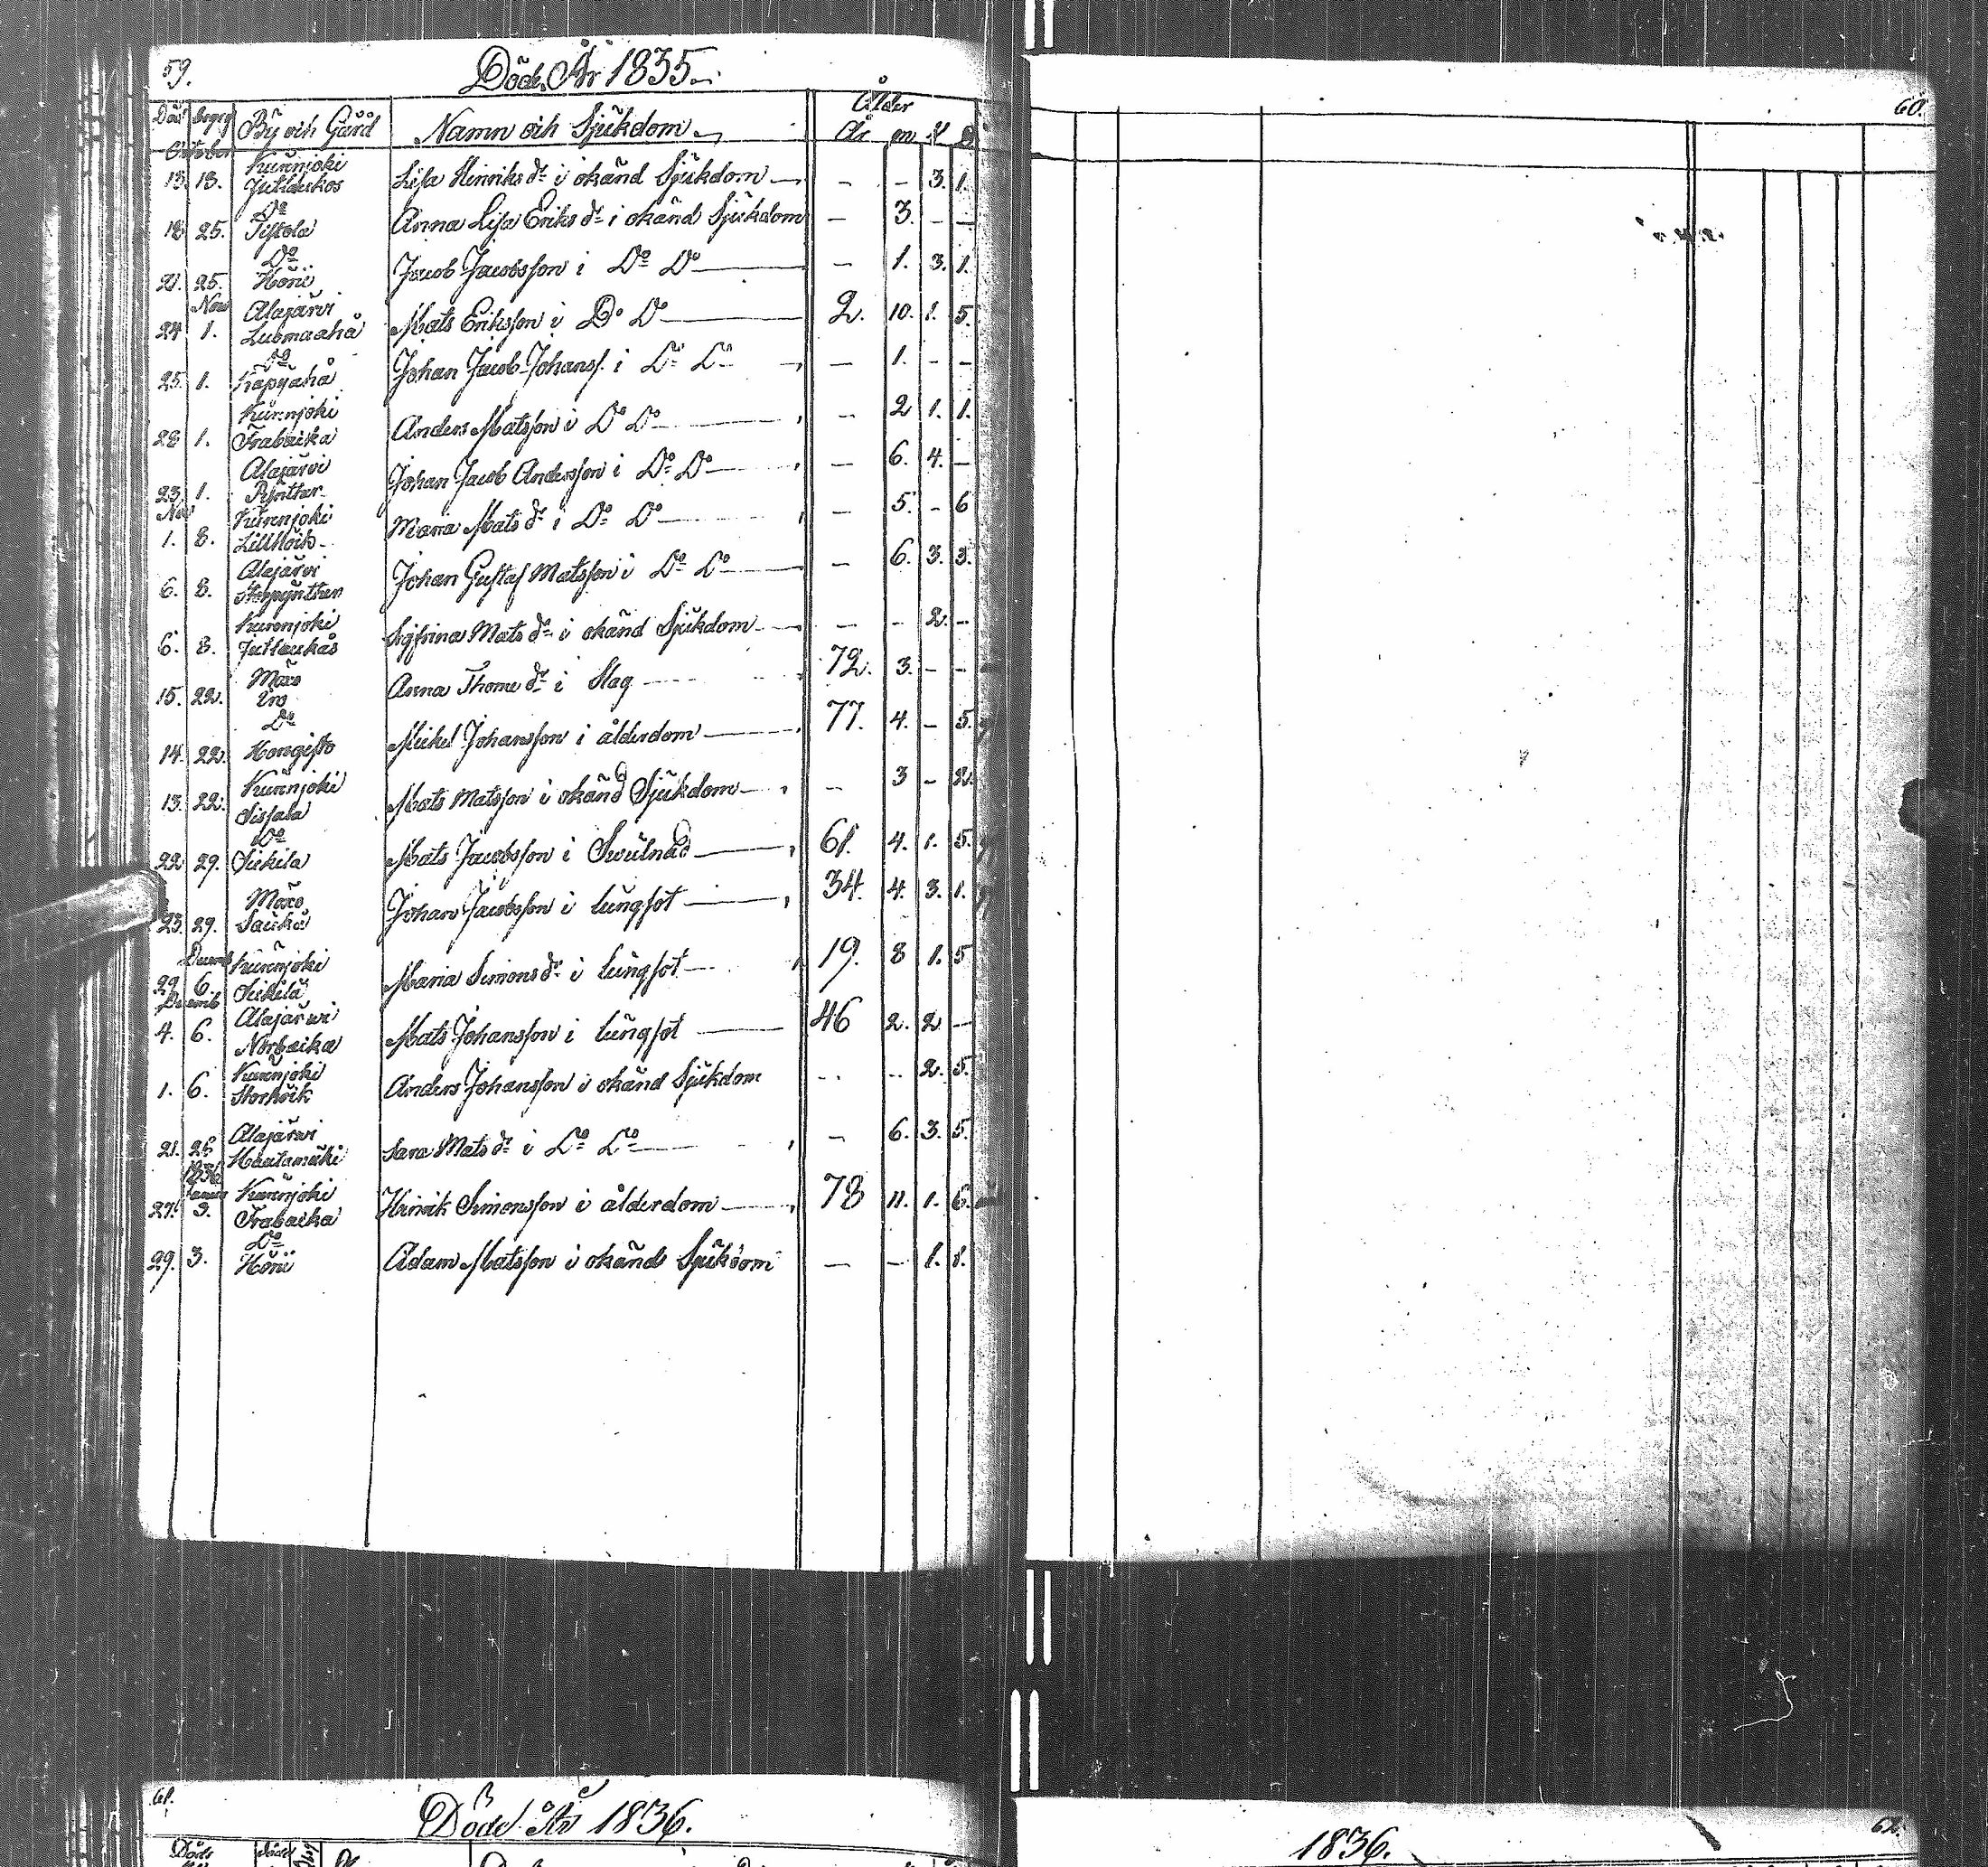 59.
Döde År 1835.
Död Begrs By och Gård Namn och Sjukdom Ålder
År m V D
October
Kurenjoki
13. 18. Jutlaukos Lisa Henriks dr i okänd Sjukdom — — — 3. 1.
Do
18 25. Pistola Anna Lisa Eriks dr i okänd Sjukdom — 3. — —
Do
21. 25. Höui Jacob Jacobsson i Do Do — — 1. 3. 1.
Nov Alajärvi
24 1. Luomaaho Mats Eriksson i Do Do — 2. 10. 1. 5.
Do
25. 1. Käpyaho Johan Jacob Johanss. i Do Do — — 1. — —
Kurenjoki
28 1. Frabacka Anders Matsson i Do Do — — 2 1. 1.
Alajärvi
23. 1. Pynttar Johan Jacob Andersson i Do Do — — 6. 4. —
Nov Kurenjoki
1. 8. Lillhöik Maria Mats dr i Do Do — — 5. — 6
Alajärvi
6. 8. Johan Gustaf Matsson i Do Do — — 6. 3. 3.
Kurenjoki
6. 8. Jutlaukås Sigfrina Mats dr i okänd Sjukdom — — — 2. —
Möxo
15. 22. Iro Anna Thome dr i Slag — 72. 3. — —
Do
14. 22. Hongisto Mickel Johansson i ålderdom — 77. 4. — 5.
Kurenjoki
13. 22. Sissala Mats Matsson i okänd Sjukdom — — 3 — 2.
Do
22 29. Siekila Mats Jacobsson i Swulnad — 61. 4. 1. 5.
Möxo
23. 29. Saukko Johan Jacobsson i lungsot — 34. 4. 3. 1.
Decemb Kurenjoki
29 6. Siekilä Maria Simons dr i lungsot — 19. 8 1. 5
Decemb Alajärwi
4. 6. Norbacka Mats Johansson i lungsot — 46 2. 2 —
Kurenjoki
1. 6. Storhöik Anders Johansson i okänd Sjukdom — — 2. 5.
Alajärwi
21. 26 Haatamäki Sara Mats dr i Do Do — — 6. 3. 5.
1836
Januari Kurenjoki
27. 3. Frabacka Hinrik Simonsson i ålderdom — 78 11. 1. 6.
Do
29. 3. Höui Adam Matsson i okänd Sjukdom — — 1. 1.
60.
61.
Döde År 1836.
Döds
1836.
62.